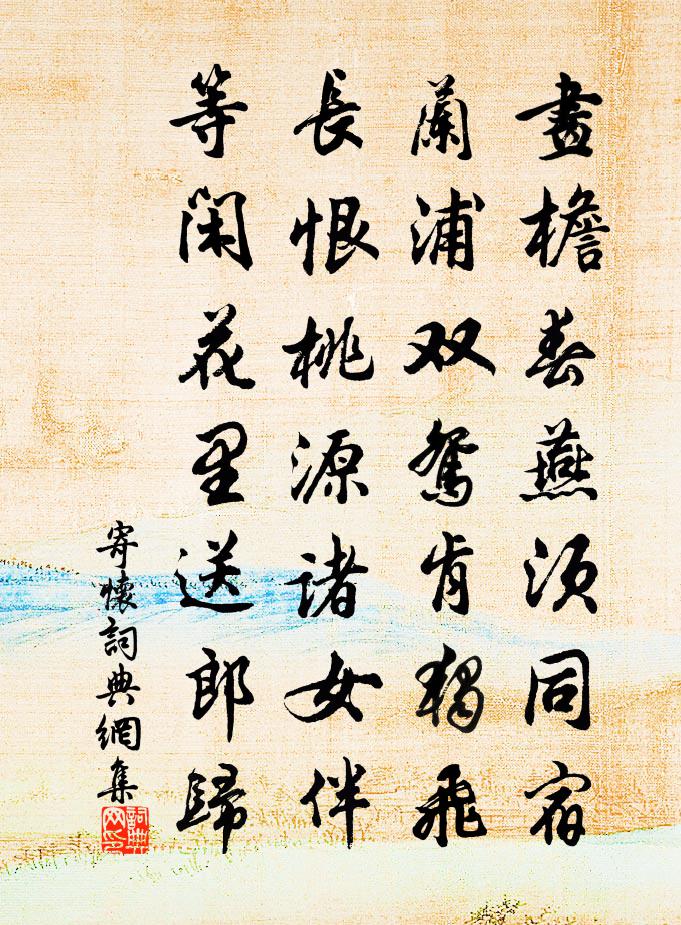 畫檐春燕須同宿
蘭浦双鴛肯獨飛
長恨桃源諸女伴
等閑花里送郎歸
寄懷詞典網集
詞典網印